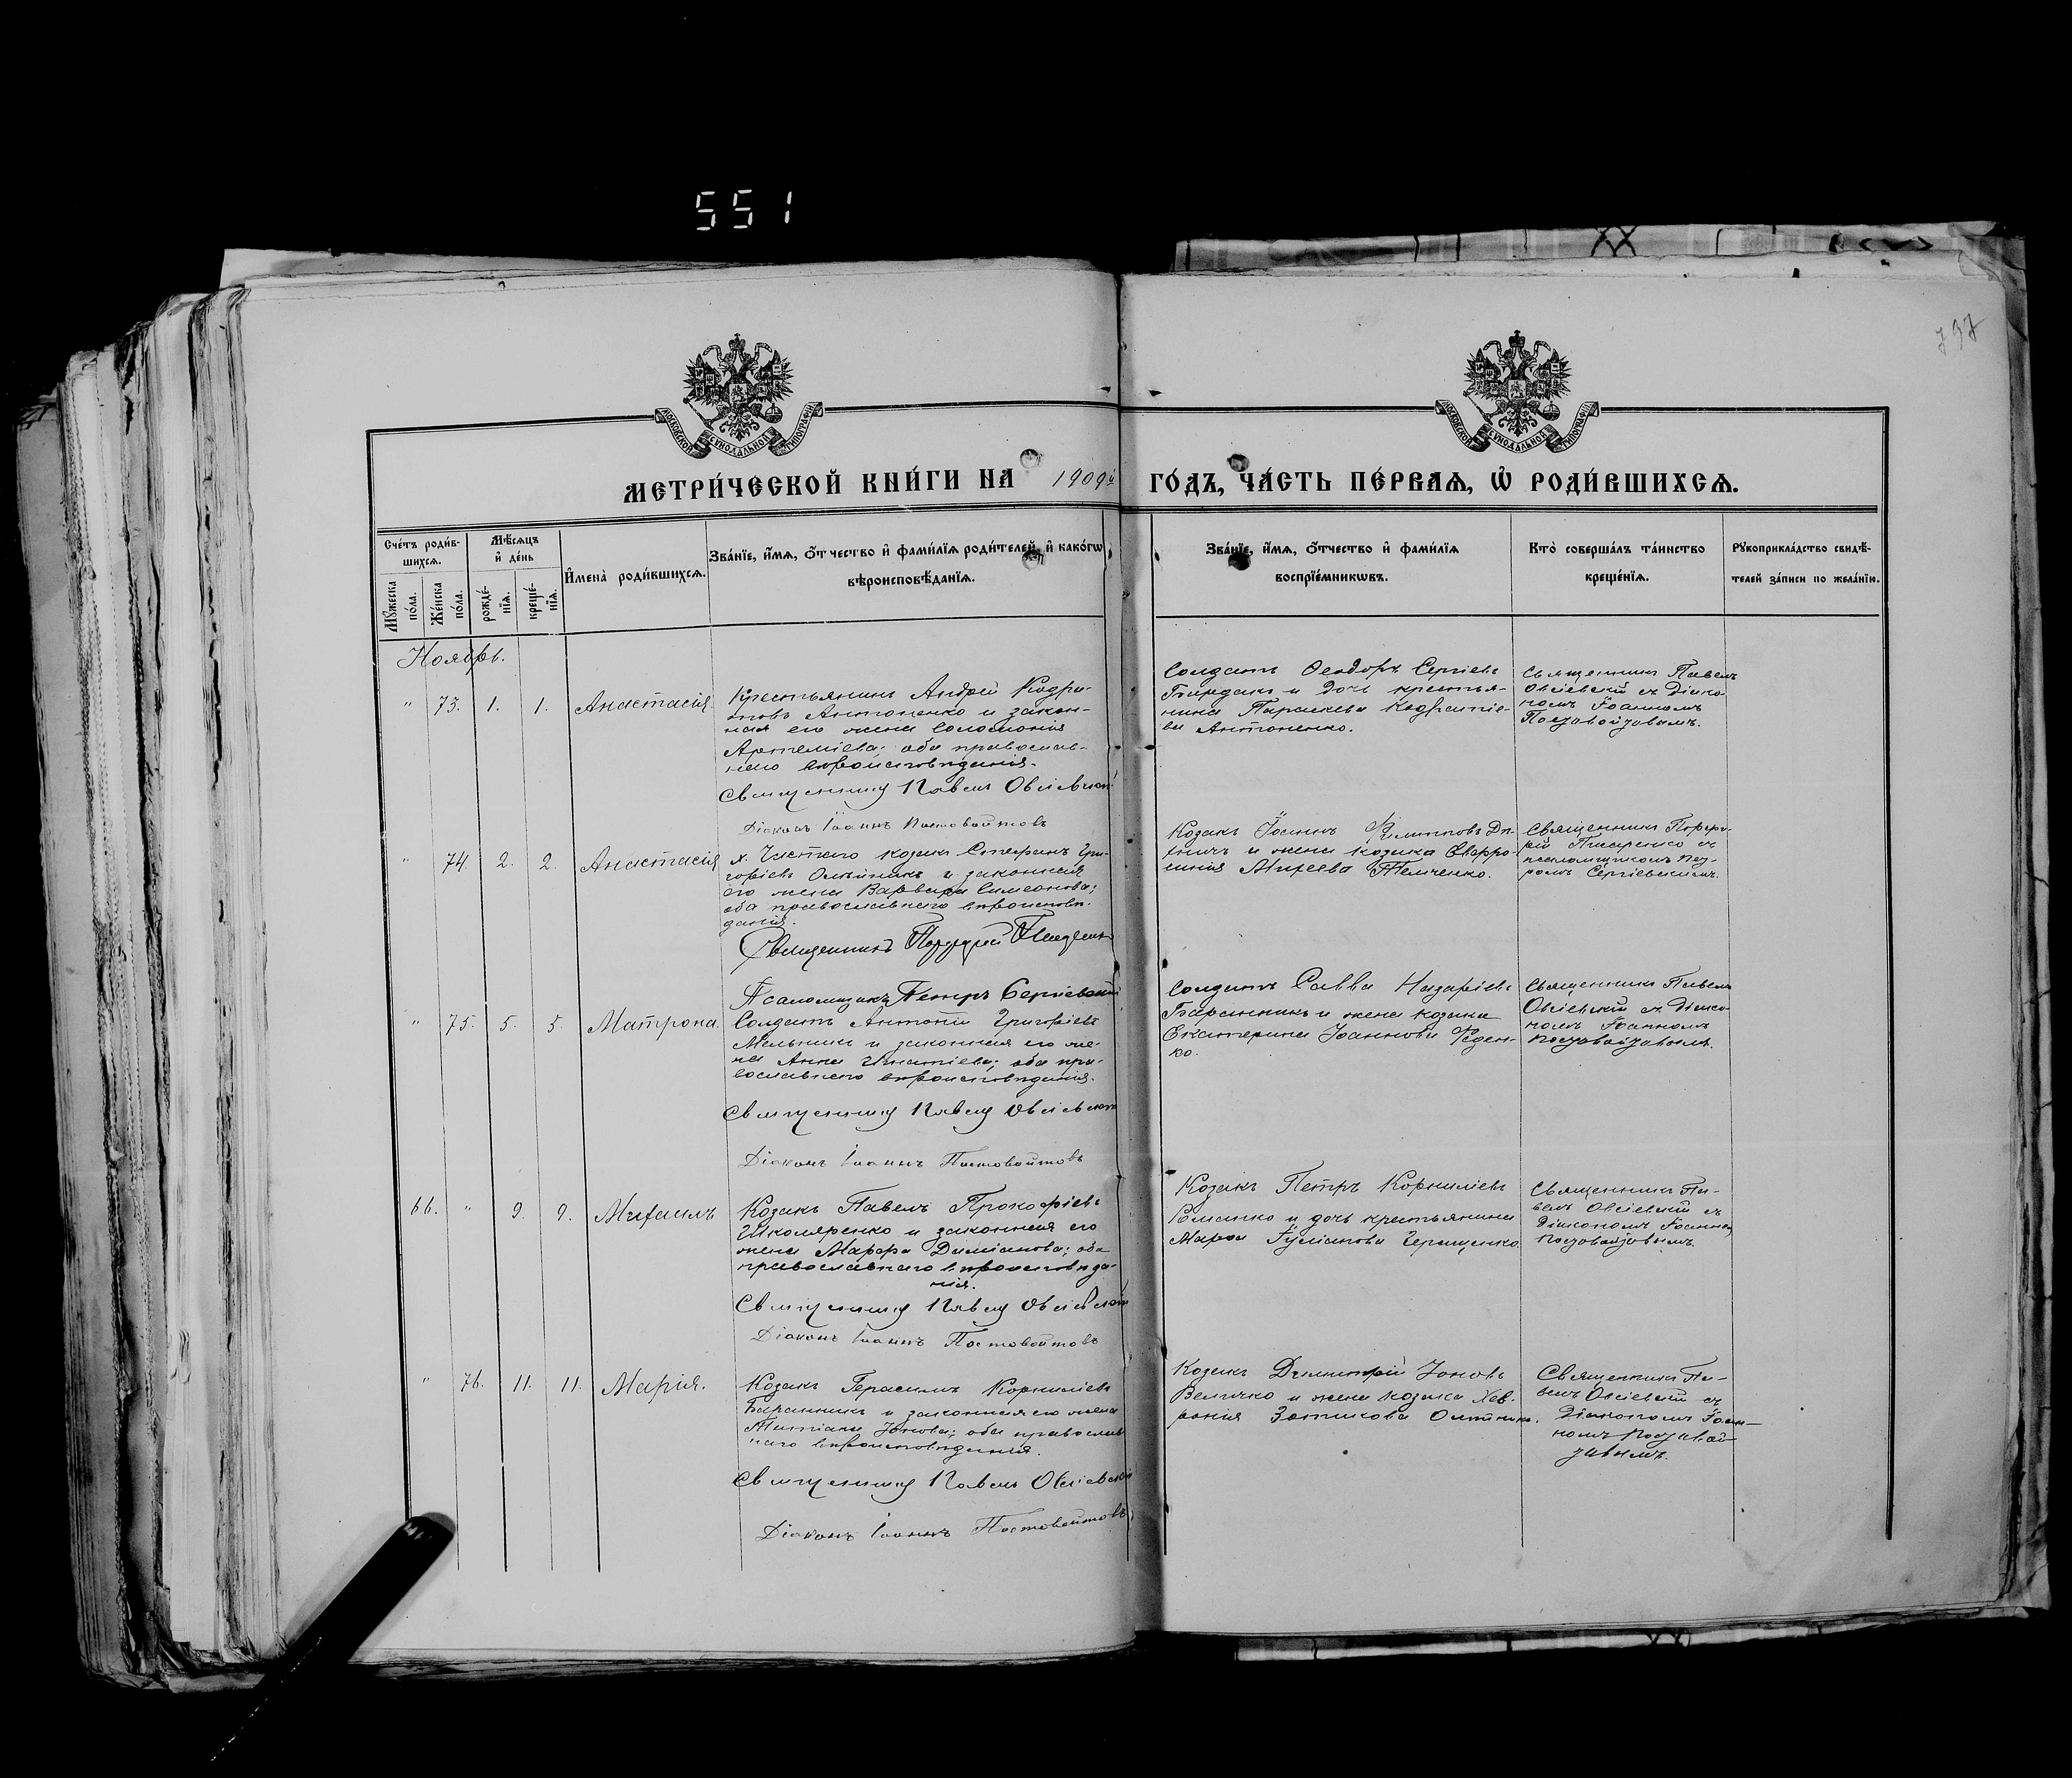 551
797
МОСКОВСКОЙ СѴНОДАЛЬНОЙ ТИПОГРАФІИ
МОСКОВСКОЙ СѴНОДАЛЬНОЙ ТИПОГРАФІИ
МЕТРИ́ЧЕСКОЙ КНИ́ГИ НА 1909й ГО́ДЪ, ЧА́СТЬ ПЕ́РВАѦ, Ѡ҆ РОДИ́ВШИХСѦ.
Сче́тъ роди́в-
шихсѧ.
Мꙋ́жеска по́ла.
Же́нска по́ла.
Мѣ́сѧцъ
и҆ де́нь
рожде́-
нїѧ.
креще́-
нїѧ.
И҆мена̀ роди́вшихсѧ.
Зва́нїе, и҆́мѧ, ѻ҆́тчество и҆ фами́лїѧ роди́телей, и҆ како́гѡ
вѣроисповѣ́данїѧ.
Зва́нїе, и҆́мѧ, ѻ҆́тчество и҆ фами́лїѧ
воспрїе́мникѡвъ.
Кто̀ соверша́лъ та́инство
креще́нїѧ.
Рꙋкоприкла́дство свидѣ́-
телей за́писи по жела́нїю.
Ноябрь.
" 73. 1. 1. Анастасія.
Крестьянинъ Андрей Кодра-
товъ Антоненко и закон-
ная его жена Соломонія
Артеміева; оба православ-
наго вѣроисповѣданія.
Священникъ Павелъ Овсіевскій
Діаконъ Іоаннъ Постовойтовъ
Солдатъ Ѳеодоръ Сергіевъ
и дочь крестья-
нина Параскева Кодратіе-
ва Антоненко.
Священникъ Павелъ
Овсіевскій съ Діако-
номъ Іоанномъ
Постовойтовымъ.
" 74. 2. 2. Анастасія
х. Чистаго козакъ Стефанъ Гри-
горіевъ Олѣйникъ и законная
его жена Варвара Симеонова;
оба православнаго вѣроисповѣ-
данія.
Священникъ Порфирій Писаренко
Псаломщикъ Петръ Сергіевскій
Козакъ Іоаннъ Филипповъ
и жена козака Евфро-
синія Михеева
Священникъ Порфи-
рій Писаренко съ
псаломщикомъ Пет-
ромъ Сергіевскимъ.
" 75. 5. 5. Матрона.
Солдатъ Антоній Григоріевъ
Мельникъ и законная его же-
на Анна Игнатіева; оба пра-
вославнаго вѣроисповѣданія.
Священникъ Павелъ Овсіевскій
Діаконъ Іоаннъ Постовойтовъ
Солдатъ Савва Назаріевъ
Баранникъ и жена козака
Екатерина Іоаннова Феден-
ко.
Священникъ Павелъ
Овсіевскій съ Діако-
номъ Іоанномъ
Постовойтовымъ.
66. " 9. 9. Михаилъ
Козакъ Павелъ Прокофіевъ
Школяренко и законная его
жена Марфа Даміанова; оба
православнаго вѣроисповѣда-
нія.
Священникъ Павелъ Овсіевскій
Діаконъ Іоаннъ Постовойтовъ
Козакъ Петръ Корниліевъ
и дочь крестьянина
Марѳа
Священникъ Па-
велъ Овсіевскій съ
Діакономъ Іоанномъ
Постовойтовымъ.
" 76. 11. 11. Марія.
Козакъ Герасимъ Корниліевъ
Баранникъ и законная его жена
Татіана Іонова; оба православ-
наго вѣроисповѣданія.
Священникъ Павелъ Овсіевскій
Діаконъ Іоаннъ Постовойтовъ
Козакъ Димитрій Іоновъ
Величко и жена козака Хев-
ронія Зотикова
Священникъ Па-
велъ Овсіевскій съ
Діакономъ Іоан-
номъ Постовой-
товымъ.